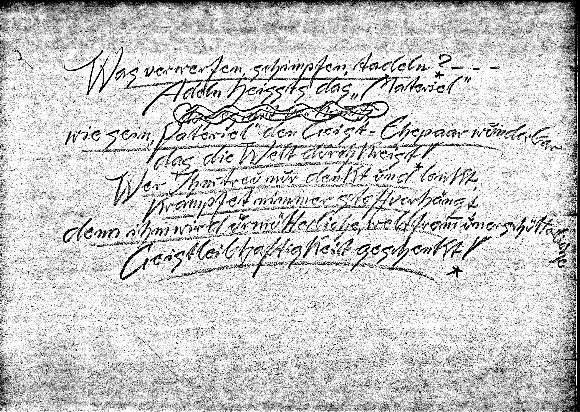 Was verwerfen, schimpfen, tadeln? - - -
Adeln heissts das „Materiel"
wie sein „Pateriel" der Geist-Ehepaar wunderbar
das die Welt durchkreist!
Wer ihm treu nur denkt und lenkt,
krampfet nimmer stoffverhängt
denn ihm wird urmütterliche, weltfromm unerschütterbare
Geistleibhaftigkeit geschenkt!